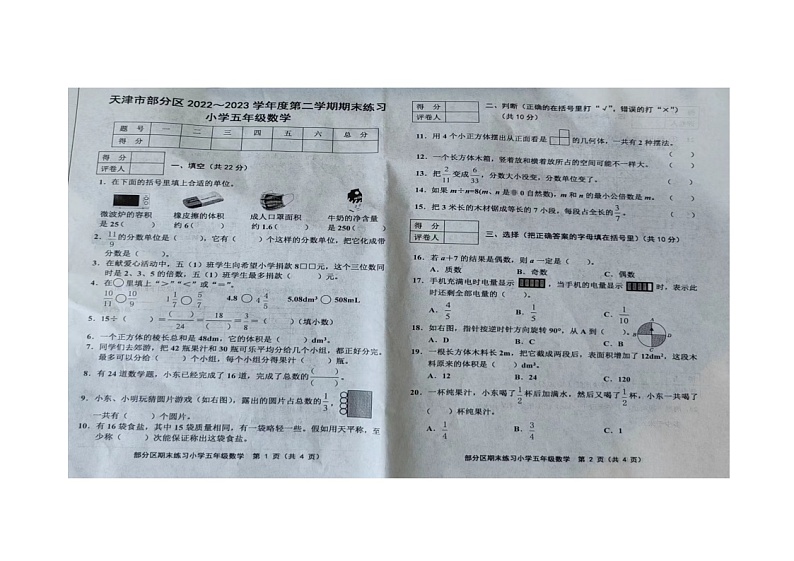 天津市部分区 2022～2023 学年度第二学期期末练习
小学五年级数学
题 号 一 二 三 四 五 六 总 分
得 分
得 分
评卷人
一、填空（共 22 分）
1．在下面的括号里填上合适的单位。
微波炉的容积 橡皮擦的体积 成人口罩面积 牛奶的净含量
是 25（ ） 约 6（ ） 约 1.6（ ） 是 250（ ）
2．11/9 的分数单位是（ ），它有（ ）个这样的分数单位，把它化成带
分数是（ ）。
3．在献爱心活动中，五（1）班学生向希望小学捐款 8□□元，这个三位数同
时是 2、3、5 的倍数，五（1）班学生最多捐款（ ）元。
4．在○里填上“＞”“＜”或“＝”。
10/11 ○ 10/9 1 1/7 ○ 5/7 4.8 ○ 4 4/5 5.08dm³ ○ 508mL
5．15÷（ ）=（ ）/24 = 18/（ ） = 3/8 =（ ）（填小数）
6．一个正方体的棱长总和是 48dm，它的体积是（ ）dm³。
7．同学们去郊游，把 42 瓶果汁和 30 瓶可乐平均分给几个小组，都正好分完。
最多可以分给（ ）个小组，每个小组分得果汁（ ）瓶。
8．有 24 道数学题，小东已经完成了 16 道，完成了总数的（ ）/（ ）。
9．小东、小明玩猜圆片游戏（如右图），露出的圆片占总数的 1/3，
一共有（ ）个圆片。
10．有 16 袋食盐，其中 15 袋质量相同，有一袋略轻一些。假如用天平称，至
少称（ ）次能保证称出这袋食盐。
部分区期末练习小学五年级数学 第 1 页（共 4 页）
得 分
评卷人
二、判断（正确的在括号里打“√”，错误的打“×”）
（共 10 分）
11．用 4 个小正方体摆出从正面看是 的几何体，一共有 2 种摆法。
（ ）
12．一个长方体木箱，竖着放和横着放所占的空间可能不一样大。 （ ）
13．把 2/11 变成 6/33，分数大小没变，分数单位变了。 （ ）
14．如果 m÷n=8(m、n 是非 0 自然数)，m 和 n 的最小公倍数是 m。 （ ）
15．把 3 米长的木材锯成等长的 7 小段，每段占全长的 3/7。 （ ）
得 分
评卷人
三、选择（把正确答案的字母填在括号里）（共 10 分）
16．若 a＋7 的结果是偶数，则 a 一定是（ ）。
A．质数 B．奇数 C．偶数
17．手机充满电时电量显示 ，当手机的电量显示 时，表示此
时还剩全部电量的（ ）。
A．4/5 B．1/5 C．1/10
18．如右图，指针按逆时针方向旋转 90°，从 A 到（ ）。
A．D B．B C．C
A
B
D
19．一根长方体木料长 2m，把它截成两段后，表面积增加了 12dm²，这段木
料原来的体积是（ ）dm³。
A．12 B．24 C．120
20．一杯纯果汁，小东喝了 1/2 杯后加满水，然后又喝了 1/2 杯，小东一共喝了
（ ）杯纯果汁。
A．1/4 B．3/4 C．1
部分区期末练习小学五年级数学 第 2 页（共 4 页）